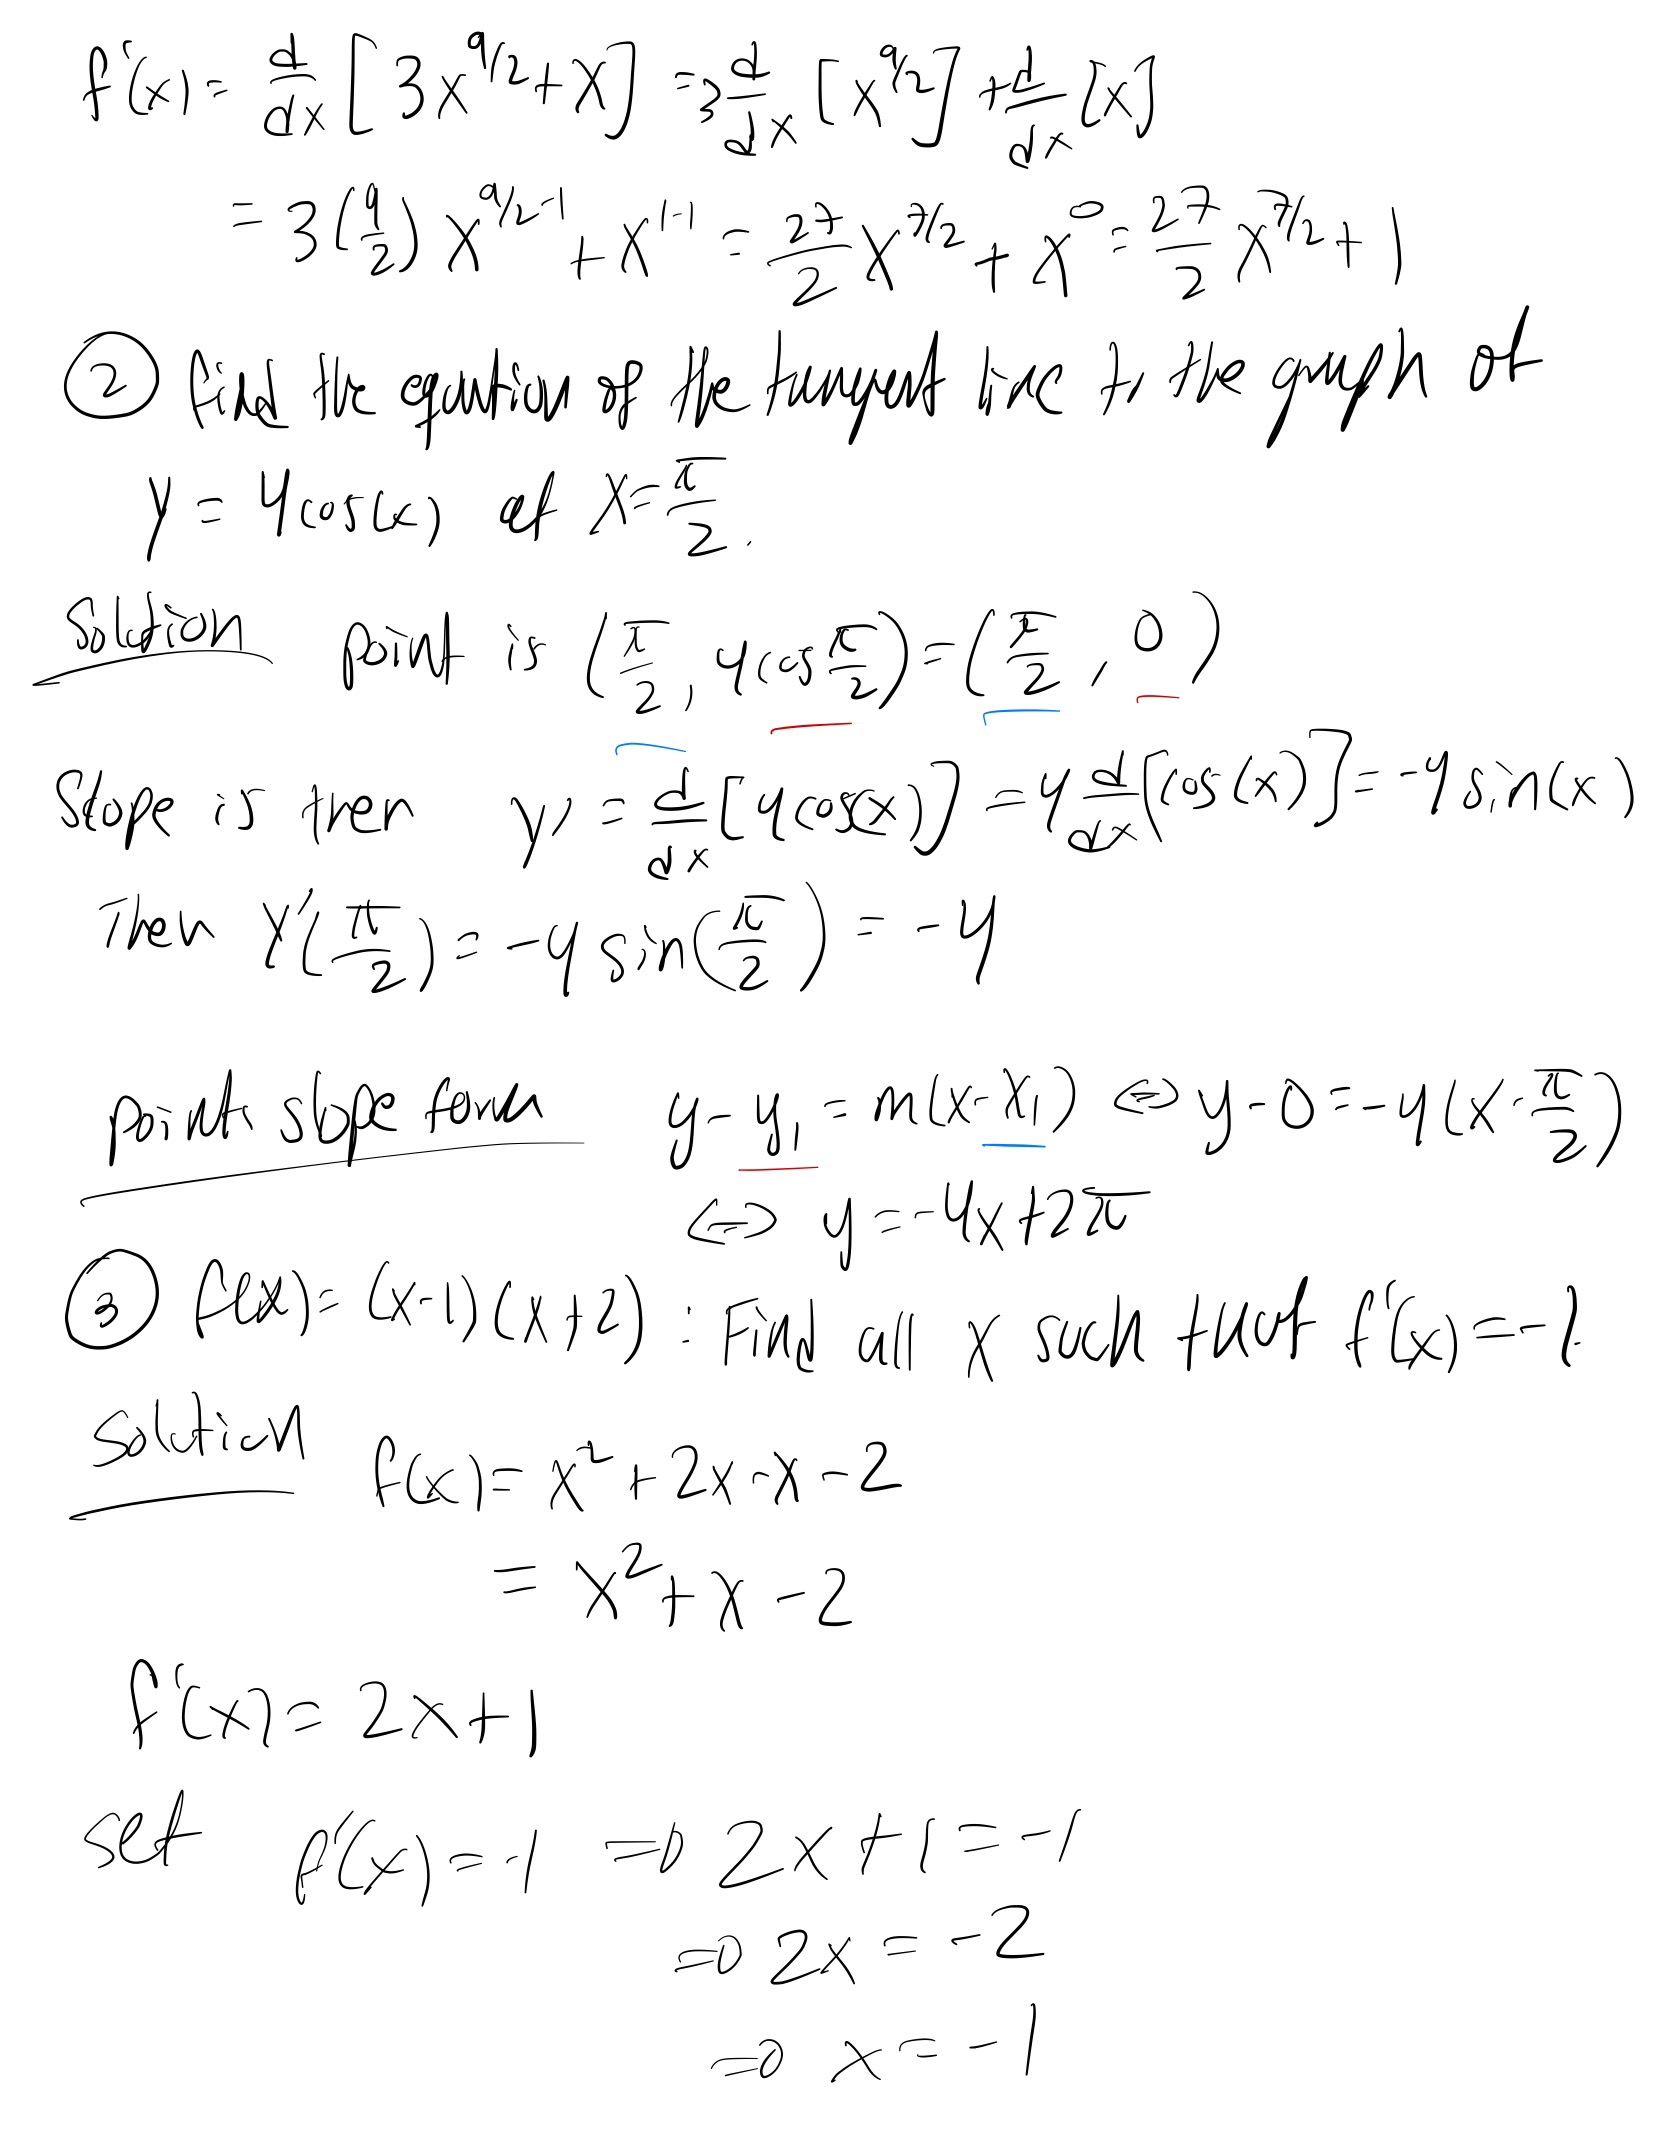 f'(x) = d/dx [3x^{9/2} + x] = 3 d/dx [x^{9/2}] + d/dx [x]
= 3(9/2) x^{9/2-1} + x^{1-1} = 27/2 x^{7/2} + x^0 = 27/2 x^{7/2} + 1
② find the equation of the tangent line to the graph of
y = 4cos(x) at x = π/2.
Solution point is (π/2, 4cos π/2) = (π/2, 0)
Slope is then y' = d/dx [4cos(x)] = 4 d/dx [cos(x)] = -4 sin(x)
Then y'(π/2) = -4 sin(π/2) = -4
point slope form y - y₁ = m(x - x₁) ⇔ y - 0 = -4(x - π/2)
⇔ y = -4x + 2π
③ f(x) = (x-1)(x+2) : Find all x such that f'(x) = -1.
Solution f(x) = x² + 2x - x - 2
= x² + x - 2
f'(x) = 2x + 1
set f'(x) = -1 ⇒ 2x + 1 = -1
⇒ 2x = -2
⇒ x = -1